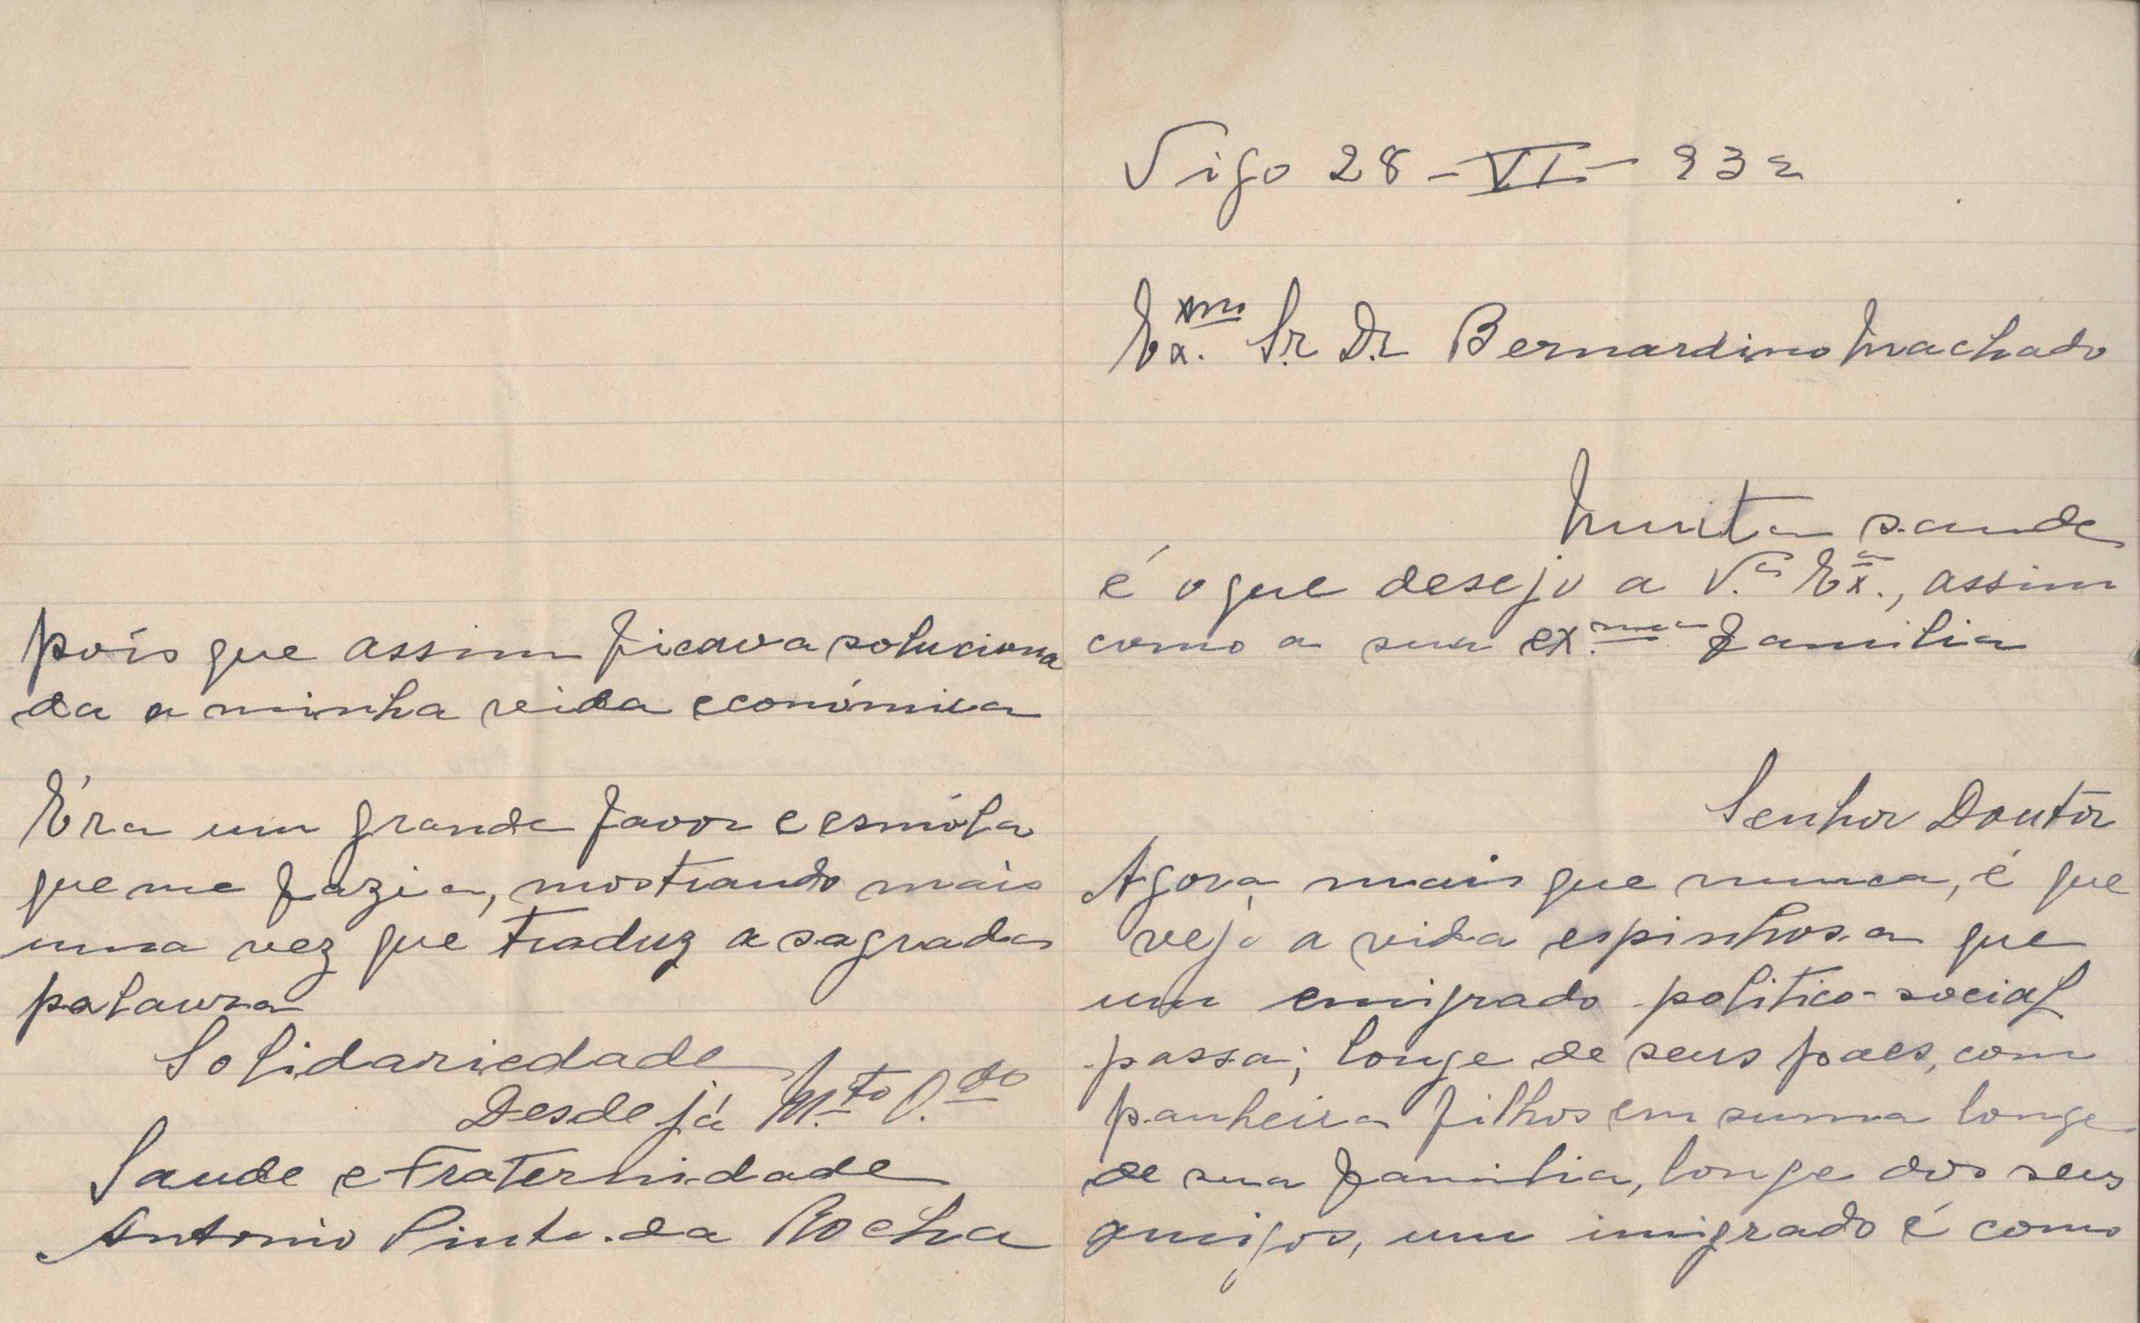 Vigo 28-VI-932
Ex.mo Sr. Dr. Bernardino Machado
Muita saude
é o que desejo a V.ª Ex.ª, assim
como a sua ex.ma familia
Senhor Doutôr
Agora, mais que nunca, é que
vejo a vida espinhosa que
um emigrado politico-social
passa; longe de seus paes, com
panheira filhos em suma longe
de sua familia, longe dos seus
amigos, um imigrado é como
pois que assim ficava soluciona
da a minha vida económica
Éra um grande favor e esmóla
que me fazia, mostrando mais
uma vez que traduz a sagrada
palavra
Solidariedade
Desde já M.to O.do
Saude e Fraternidade
Antonio Pinto da Rocha